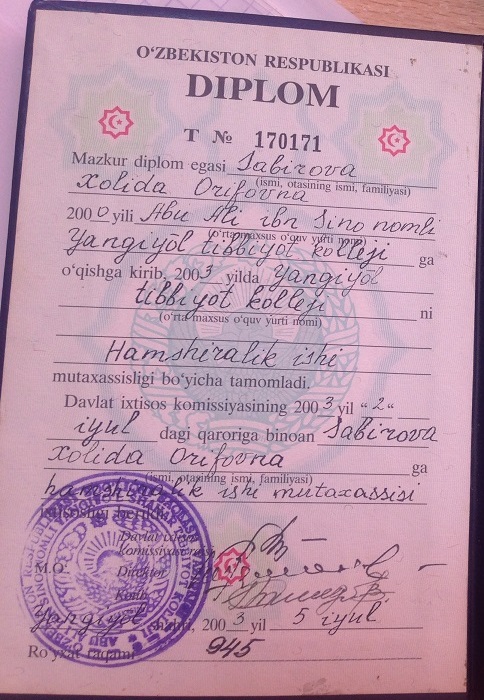 O‘ZBEKISTON RESPUBLIKASI
DIPLOM
T № 170171
Mazkur diplom egasi Sabirova
Xolida Orifovna
(ismi, otasining ismi, familiyasi)
2000 yili Abu Ali ibn Sino nomli
(o‘rta maxsus o‘quv yurti nomi)
Yangiyōl tibbiyōt kolleji ga
o‘qishga kirib, 2003 yilda Yangiyōl
tibbiyōt kolleji ni
(o‘rta maxsus o‘quv yurti nomi)
Hamshiralik ishi
mutaxassisligi bo‘yicha tamomladi.
Davlat ixtisos komissiyasining 2003 yil “2“
iyul dagi qaroriga binoan Sabirova
Xolida Orifovna ga
(ismi, otasining ismi, familiyasi)
hamshiralik ishi mutaxassisi
berildi
Davlat
komissiyasi
M.O. Direktor
Kotib
Yangiyōl 2003 yil 5 iyul
Ro‘yxat raqami 945